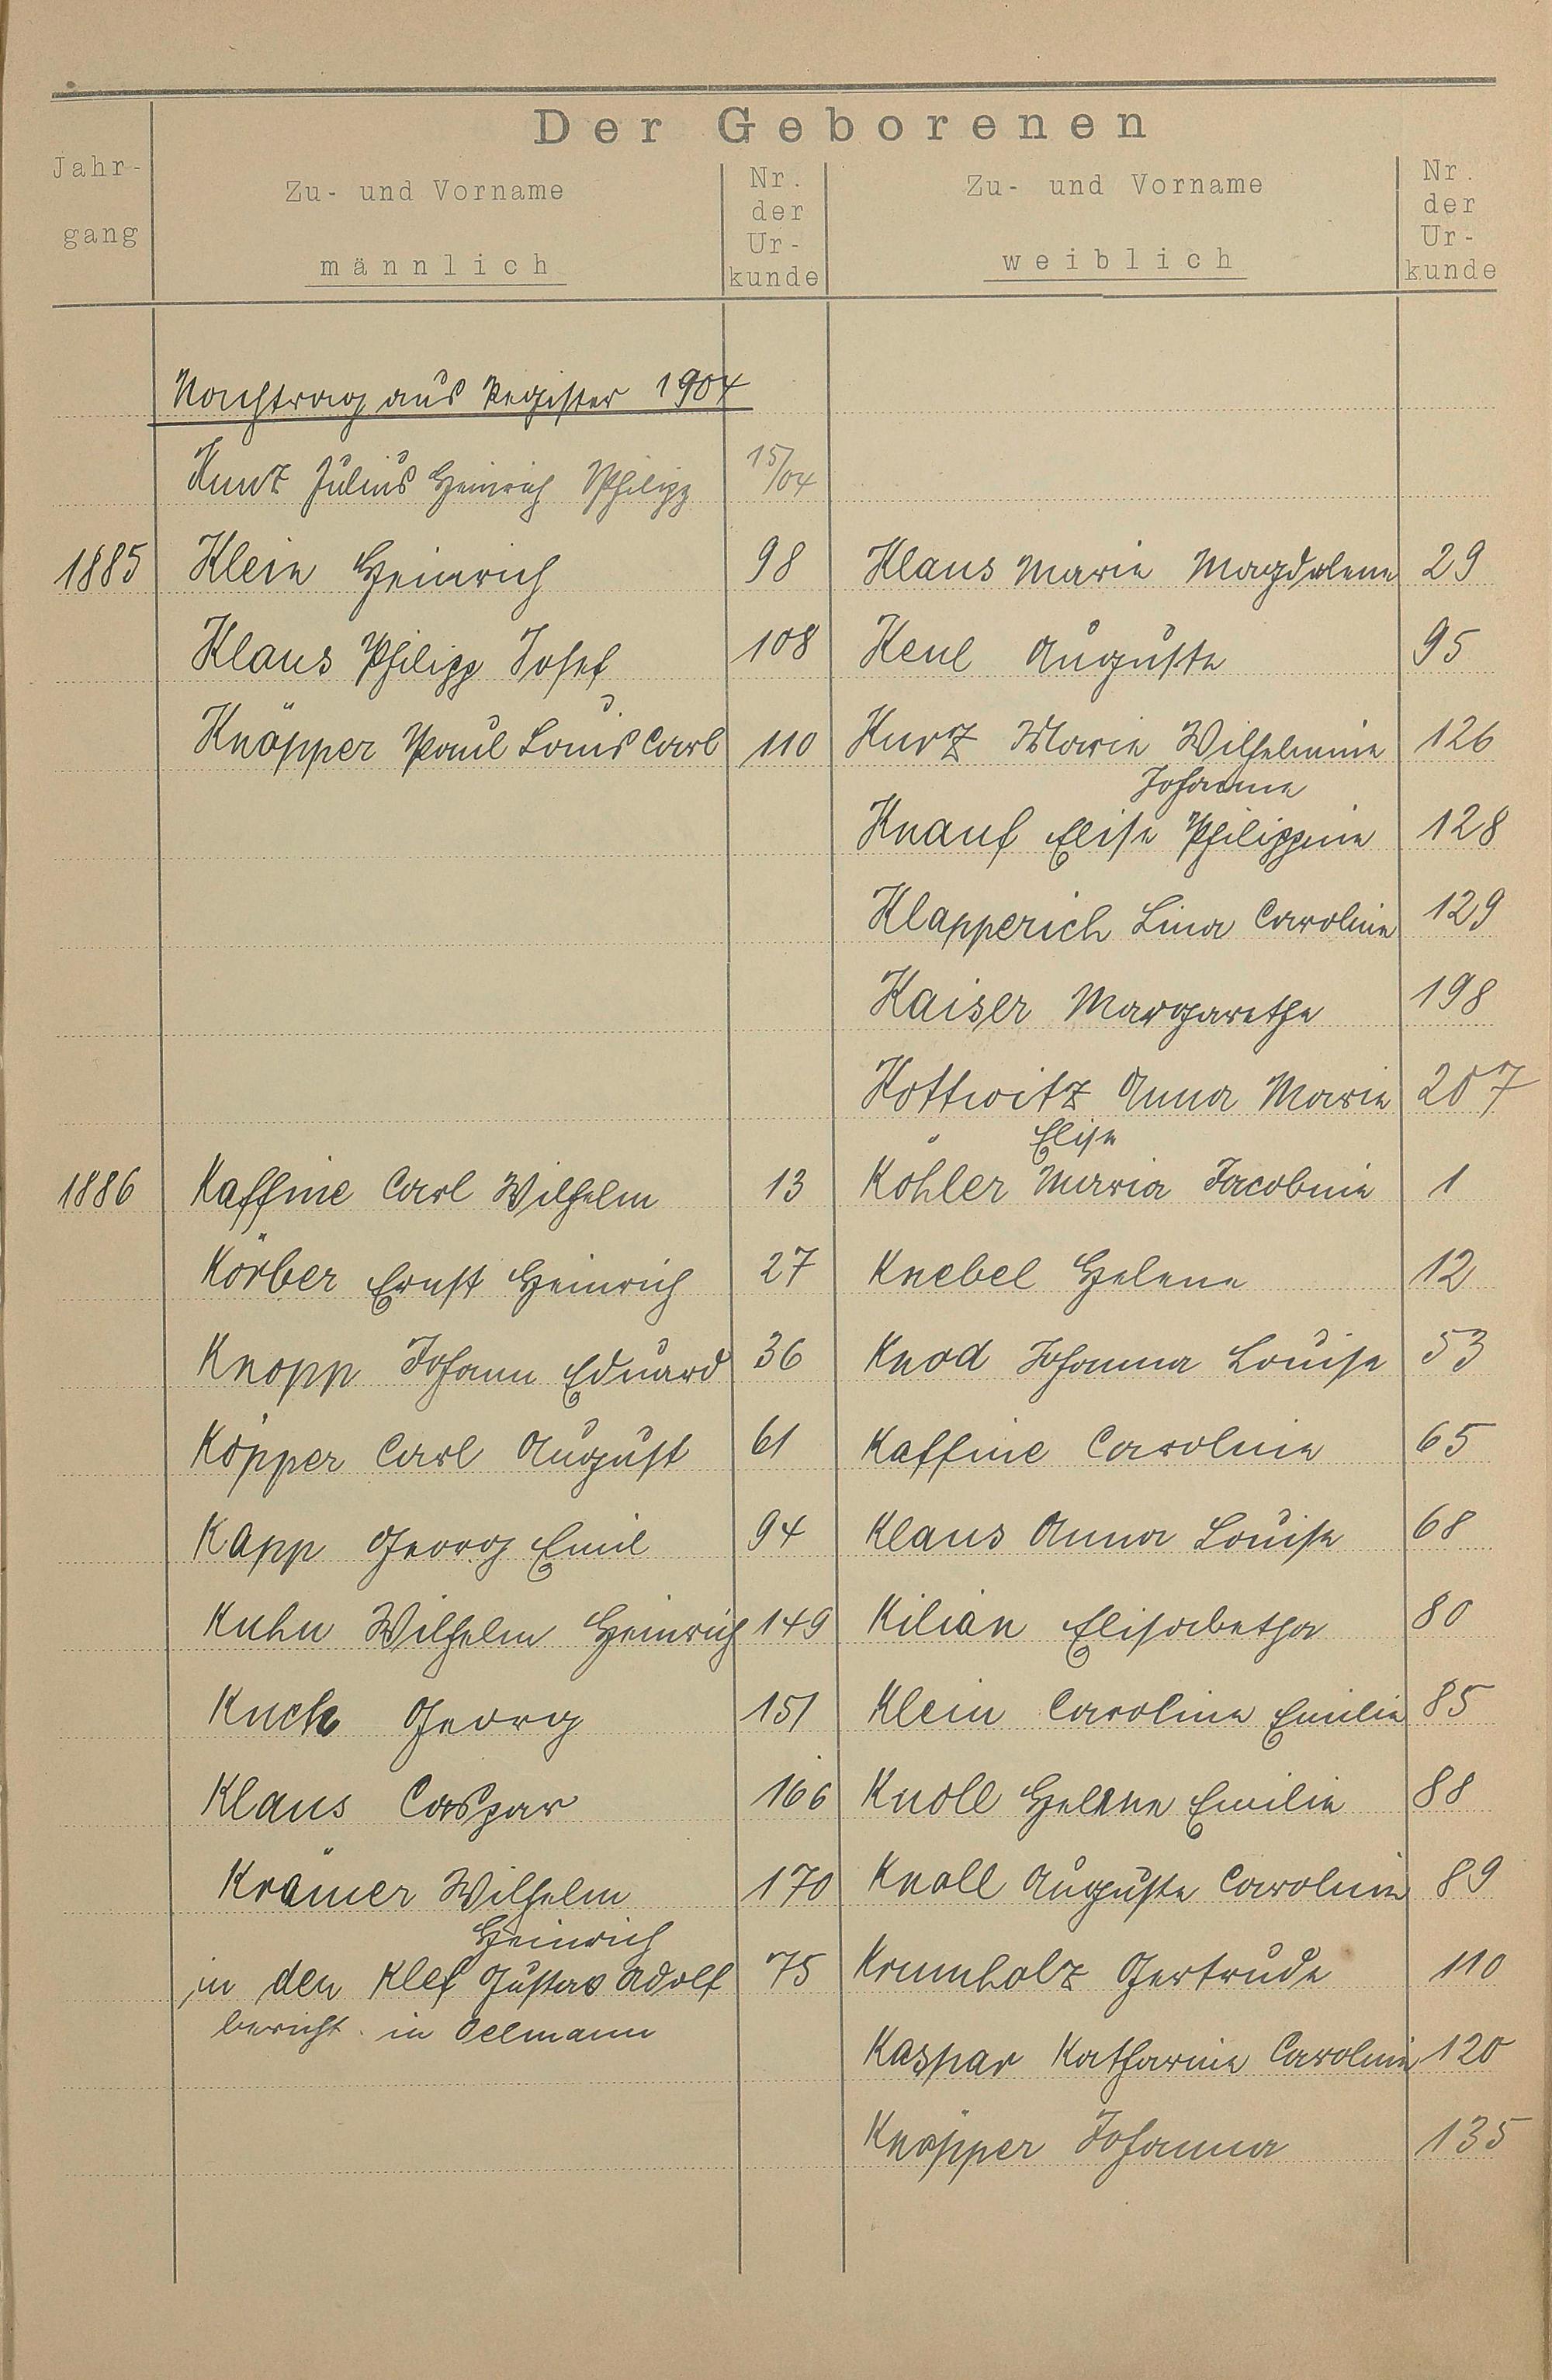 Der Geborenen
Jahr-
gang
Zu- und Vorname
männlich
Nr.
der
Ur-
kunde
Zu- und Vorname
weiblich
Nr.
der
Ur-
kunde
Nachtrag aus Register 1904
Kunz Julius Heinrich Philipp 15/04
1885 Klein Heinrich 98 Klaus Marie Magdalene 29
Klaus Philipp Josef 108 Keul Auguste 95
Knöpper Paul Louis Carl 110 Kurz Marie Wilhelmine 126
Johanna
Knauf Elise Philippine 128
Klapperich Lina Caroline 129
Kaiser Margarethe 198
Kottwitz Anna Marie 207
Elise
1886 Kaffine Carl Wilhelm 13 Köhler Maria Jacobine 1
Körber Ernst Heinrich 27 Knebel Helene 12
Knopp Johann Eduard 36 Knod Johanna Louise 53
Köpper Carl August 61 Kaffine Caroline 65
Kapp Georg Emil 94 Klaus Anna Louise 68
Kuhn Wilhelm Heinrich 149 Kilian Elisabetha 80
Kuch Georg 151 Klein Caroline Emilie 85
Klaus Caspar 166 Knoll Helene Emilie 88
Krämer Wilhelm 170 Knoll Auguste Caroline 89
Heinrich
in den Klef Gustav Adolf 75 Krumholz Gertrude 110
bericht. in Oelmann
Kaspar Katharine Caroline 120
Knöpper Johanna 135